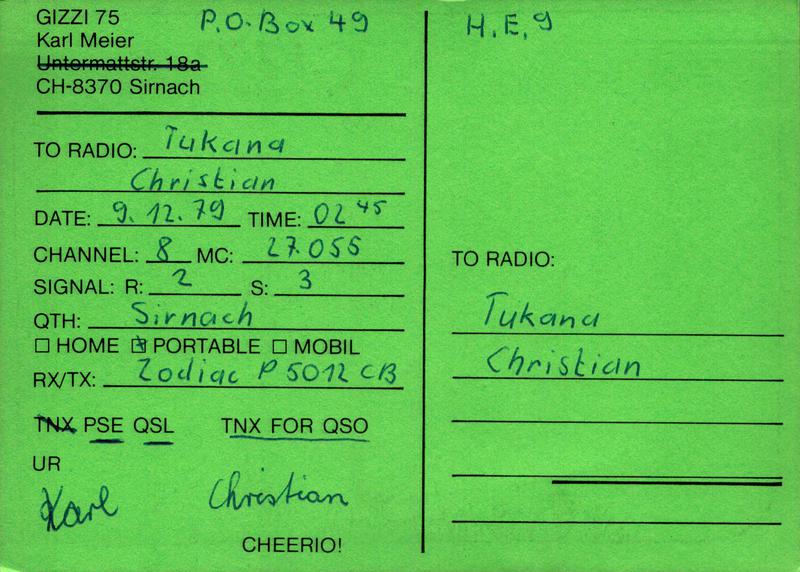 GIZZI 75 P.O. Box 49
Karl Meier
Untermattstr. 18a
CH-8370 Sirnach
TO RADIO: Tukana
Christian
DATE: 9.12.79 TIME: 02 45
CHANNEL: 8 MC: 27.055
SIGNAL: R: 2 S: 3
QTH: Sirnach
HOME PORTABLE MOBIL
RX/TX: Zodiac P 5012 CB
TNX PSE QSL TNX FOR QSO
UR
Karl Christian
CHEERIO!
H.E.9
TO RADIO:
Tukana
Christian